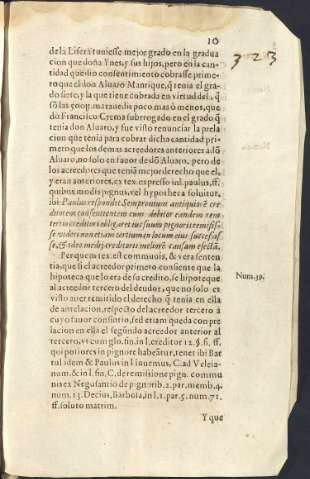 10
323
de la Lisera tuuiesse mejor grado en la gradua
cion que doña Ynes, y sus hijos, pero en la can-
tidad que dio consentimiento cobrasse prime-
ro que el don Aluaro Manrique, q̃ tenia el gra-
do siete, y la que tiene cobrada en virtud del, q̃
sõ las marauedis poco mas ò menos, que
dõ Francisco Crema subrrogado en el grado q̃
tenia don Aluaro, y fue visto renunciar la prela
cion que tenia para cobrar dicha cantidad pri
mero que los demas acreedores anteriores a dõ
Aluaro, no solo en fauor de dõ Aluaro, pero de
los acreedores que tenia mejor derecho que el,
y eran anteriores, ex tex. expresso in l. paulus, ff.
quibus modis pignus, vel hypotheca soluitur,
ibi: Paulus respondit Sempronium antiquiorẽ cre
ditorem consentientem cum debitor eandem rem
tertio creditori obligaret ius suum pignoris remisis-
se videri non etiam tertium in locum eius successis-
se, & ideo medij creditoris meliorẽ causam effectã.
Per quem tex. est communis, & vera senten
tia, que si el acreedor primero consiente que la
hipoteca que lo era de su credito, se hipoteque
al acreedor tercero del deudor, que no solo es
visto auer remitido el derecho q̃ tenia en ella
de antelacion, respecto del acreedor tercero à
cuyo fauor consintio, sed etiam queda con pre
lacion en ella el segundo acreedor anterior al
tercero, vt cum glo. fin. in l. creditor 12. §. fi. ff.
qui potiores in pignore habeãtur, tenet ibi Bar
tul. idem & Paulus in l. iubemus, C. ad Veleia-
num, & in l. fin, C. de remisione pign. commu
nis ex Negusantio de pignorib. 2. par. memb. 4.
num. 13. Decius, Barbosa, in l. 1. par. 5. num. 71.
ff. soluto matrim.
Num. 39.
Y que